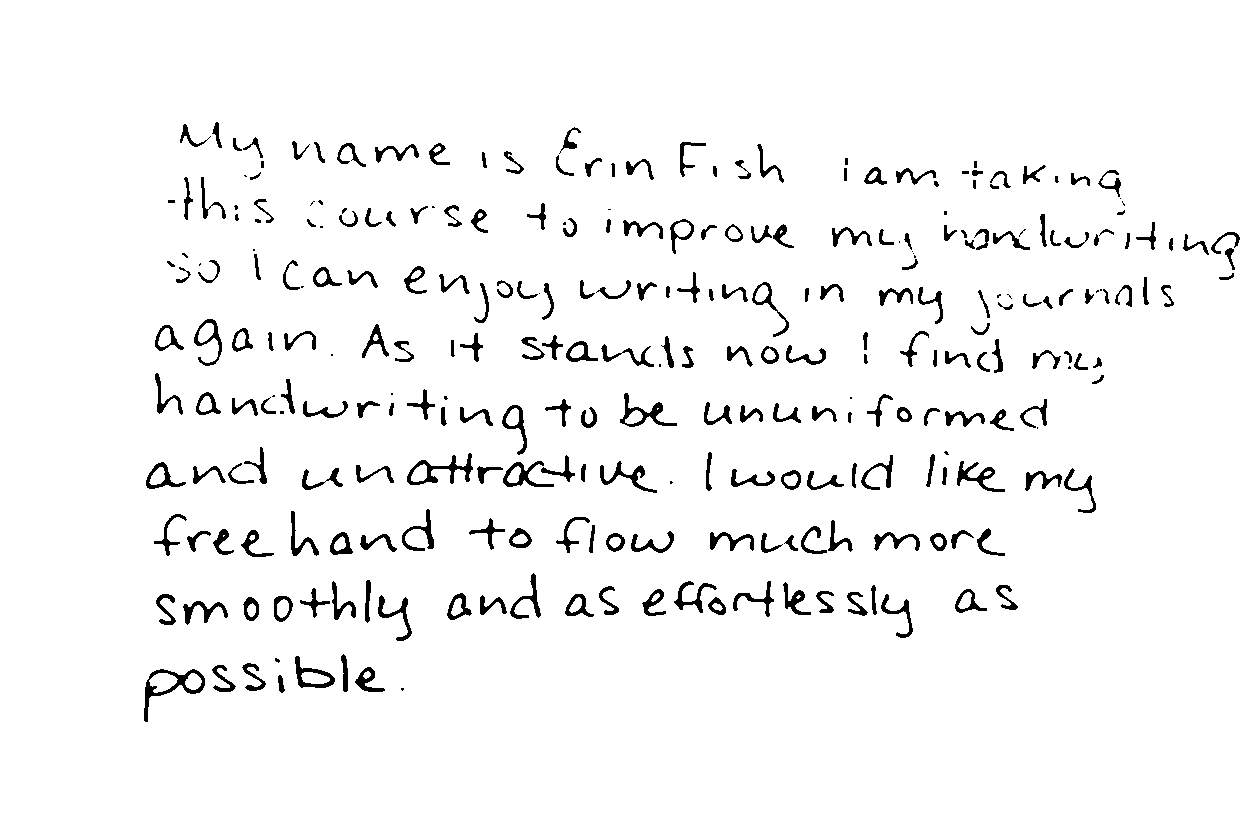 My name is Erin Fish i am taking
this course to improve my handwriting
so I can enjoy writing in my journals
again. As it stands now I find my
handwriting to be ununiformed
and unattractive. I would like my
freehand to flow much more
smoothly and as effortlessly as
possible.